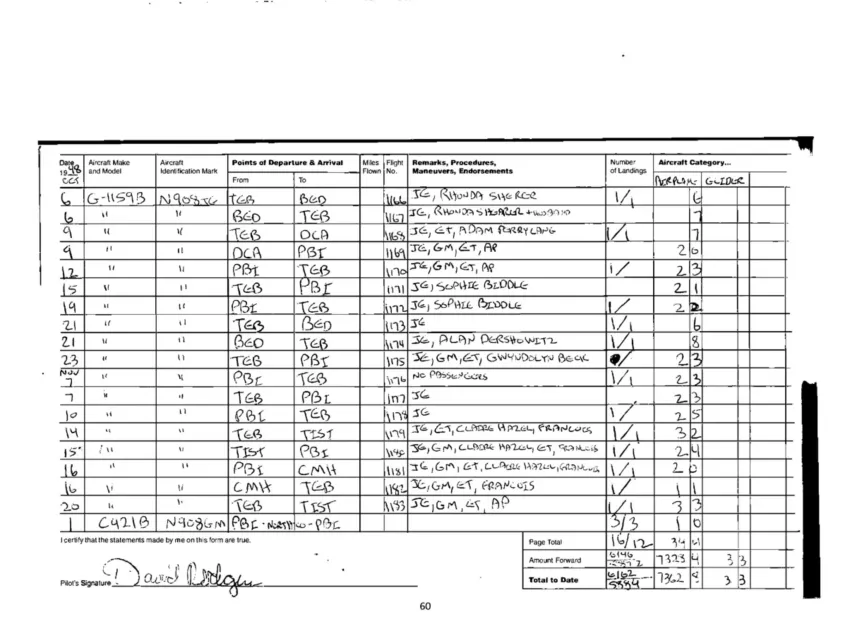 Date 1998 OCT Aircraft Make and Model Aircraft Identification Mark Points of Departure & Arrival From To Miles Flown Flight No. Remarks, Procedures, Maneuvers, Endorsements Number of Landings Aircraft Category... AIRPLANE GLIDER
6 G-1159B N908JE TEB BED 1166 JE, RHONDA SHERER 1/1 6
6 " " BED TEB 1167 JE, RHONDA SHEARER + 7
9 " " TEB DCA 1168 JE, ET, ADAM PERRY LANG 1/1 7
9 " " DCA PBI 1169 JE, GM, ET, AP 2 0
12 " " PBI TEB 1170 JE, GM, ET, AP 1/ 2 3
15 " " TEB PBI 1171 JE, SOPHIE BIDDLE 2 1
19 " " PBI TEB 1172 JE, SOPHIE BIDDLE 1/ 2 2
21 " " TEB BED 1173 JE 1/1 6
21 " " BED TEB 1174 JE, ALAN DERSHOWITZ 1/1 8
23 " " TEB PBI 1175 JE, GM, ET, GWYNDOLYN BECK 2 3
NOV 7 " " PBI TEB 1176 NO PASSENGERS 1/1 2 3
7 " " TEB PBI 1177 JE 2 3
10 " " PBI TEB 1178 JE 1/ 2 5
14 " " TEB TIST 1179 JE, ET, CLAIRE HAZEL, FRANCOIS 1/1 3 2
15 " " TIST PBI 1180 JE, GM, CLAIRE HAZEL, ET, FRANCOIS 1/1 2 4
16 " " PBI CMH 1181 JE, GM, ET, CLAIRE HAZEL, FRANCOIS 1/1 2 0
16 " " CMH TEB 1182 JE, GM, ET, FRANCOIS 1/ 1 1
20 " " TEB TIST 1183 JE, GM, ET, AP 1/1 3 3
1 C421B N908GM PBI - NORTH CO - PBI 3/3 1 0
I certify that the statements made by me on this form are true. Page Total 16/12 34
Amount Forward 6146 7323 4 3 3
Pilot's Signature David Rodgers Total to Date 6162 7362 3 3
60